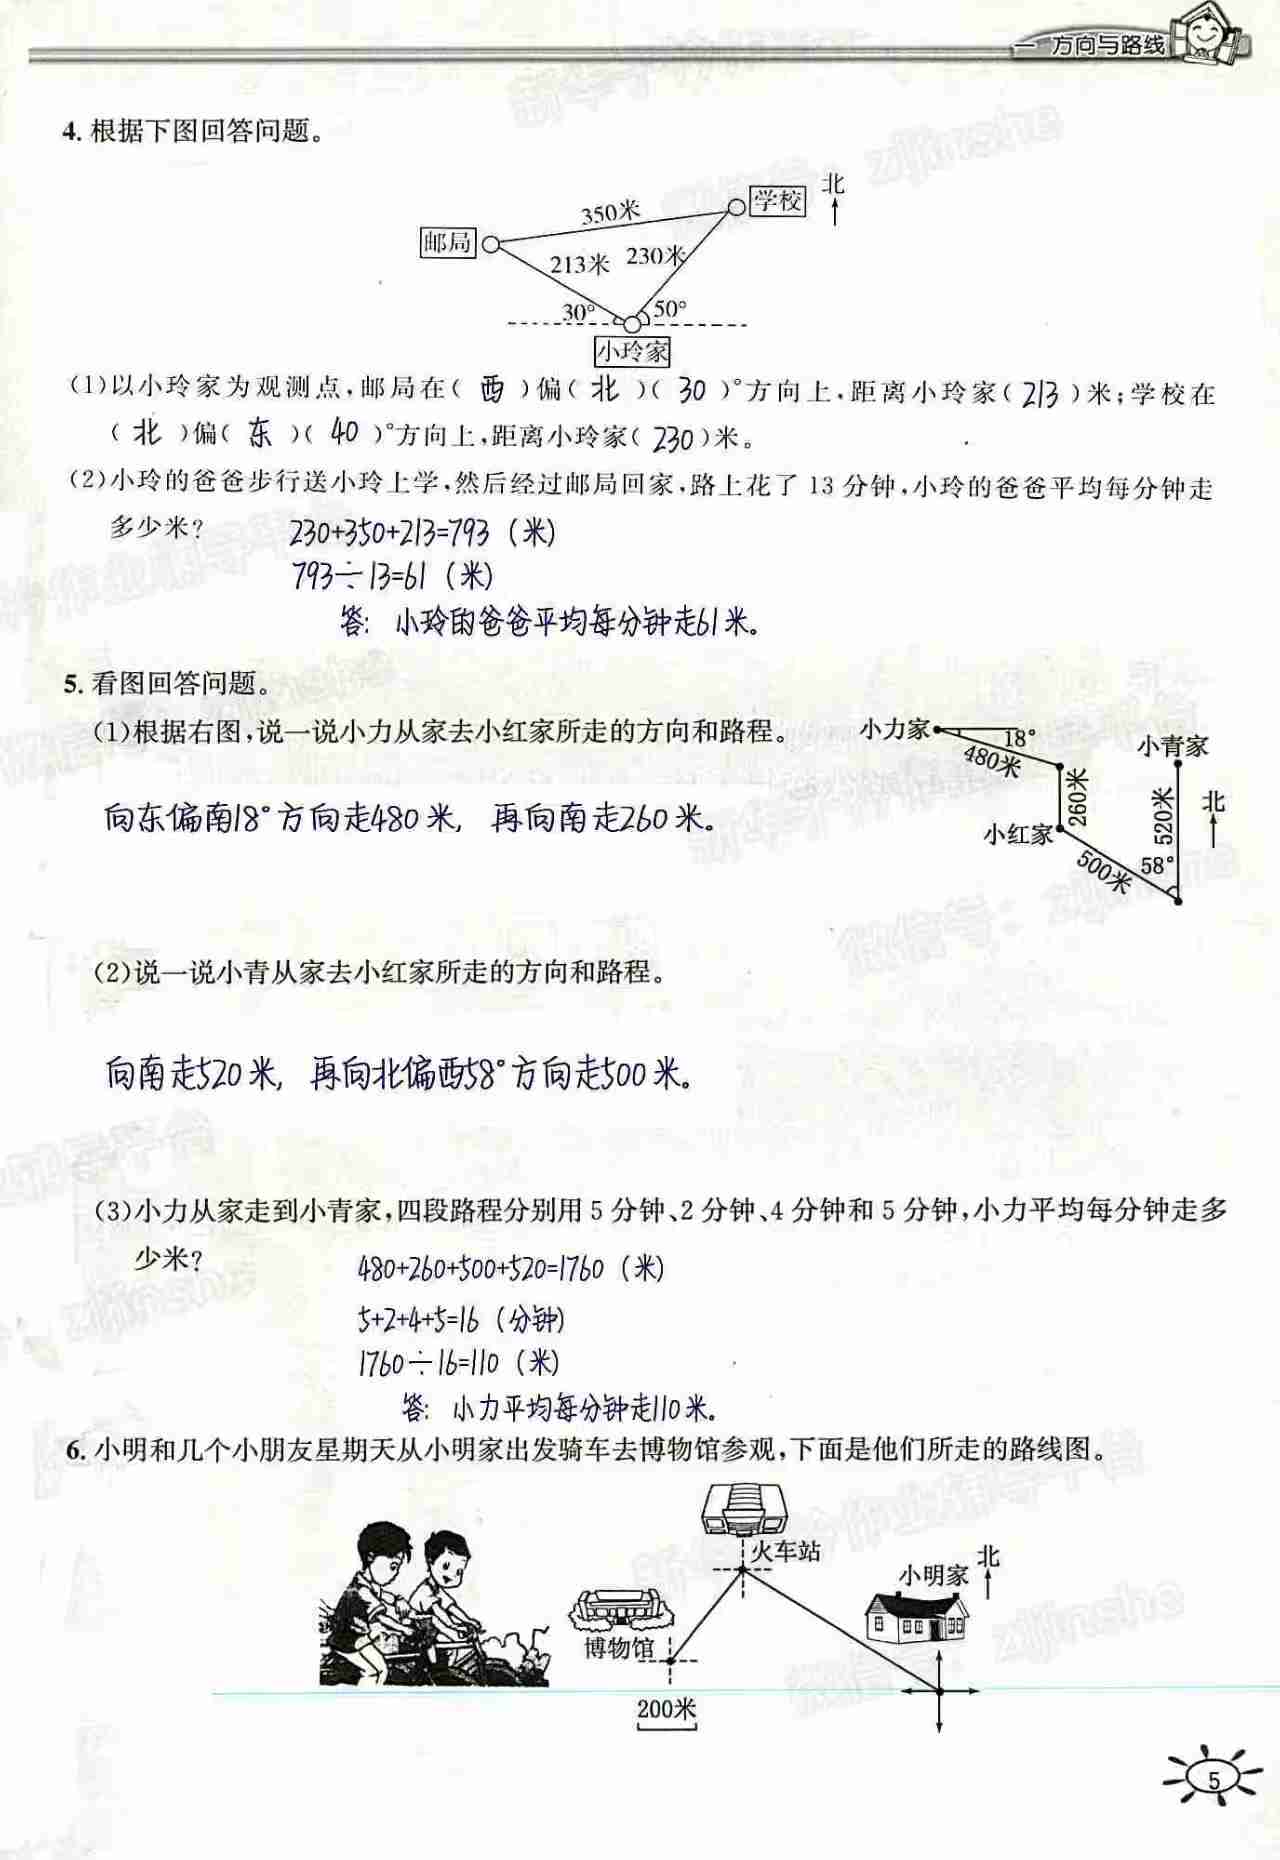 一 方向与路线
4. 根据下图回答问题。
北
学校
350米
邮局
213米 230米
30° 50°
小玲家
(1)以小玲家为观测点,邮局在( 西 )偏( 北 )( 30 )°方向上,距离小玲家( 213 )米;学校在
( 北 )偏( 东 )( 40 )°方向上,距离小玲家( 230 )米。
(2)小玲的爸爸步行送小玲上学,然后经过邮局回家,路上花了 13 分钟,小玲的爸爸平均每分钟走
多少米?
230+350+213=793 (米)
793÷13=61 (米)
答: 小玲的爸爸平均每分钟走61米。
5. 看图回答问题。
(1)根据右图,说一说小力从家去小红家所走的方向和路程。
小力家
18°
480米
小青家
260米
520米
北
小红家
500米
58°
向东偏南18°方向走480米, 再向南走260米。
(2)说一说小青从家去小红家所走的方向和路程。
向南走520米, 再向北偏西58°方向走500米。
(3)小力从家走到小青家,四段路程分别用 5 分钟、2 分钟、4 分钟和 5 分钟,小力平均每分钟走多
少米?
480+260+500+520=1760 (米)
5+2+4+5=16 (分钟)
1760÷16=110 (米)
答: 小力平均每分钟走110米。
6. 小明和几个小朋友星期天从小明家出发骑车去博物馆参观,下面是他们所走的路线图。
火车站
北
小明家
博物馆
200米
5
zijinshe
zijinshe
zijinshe